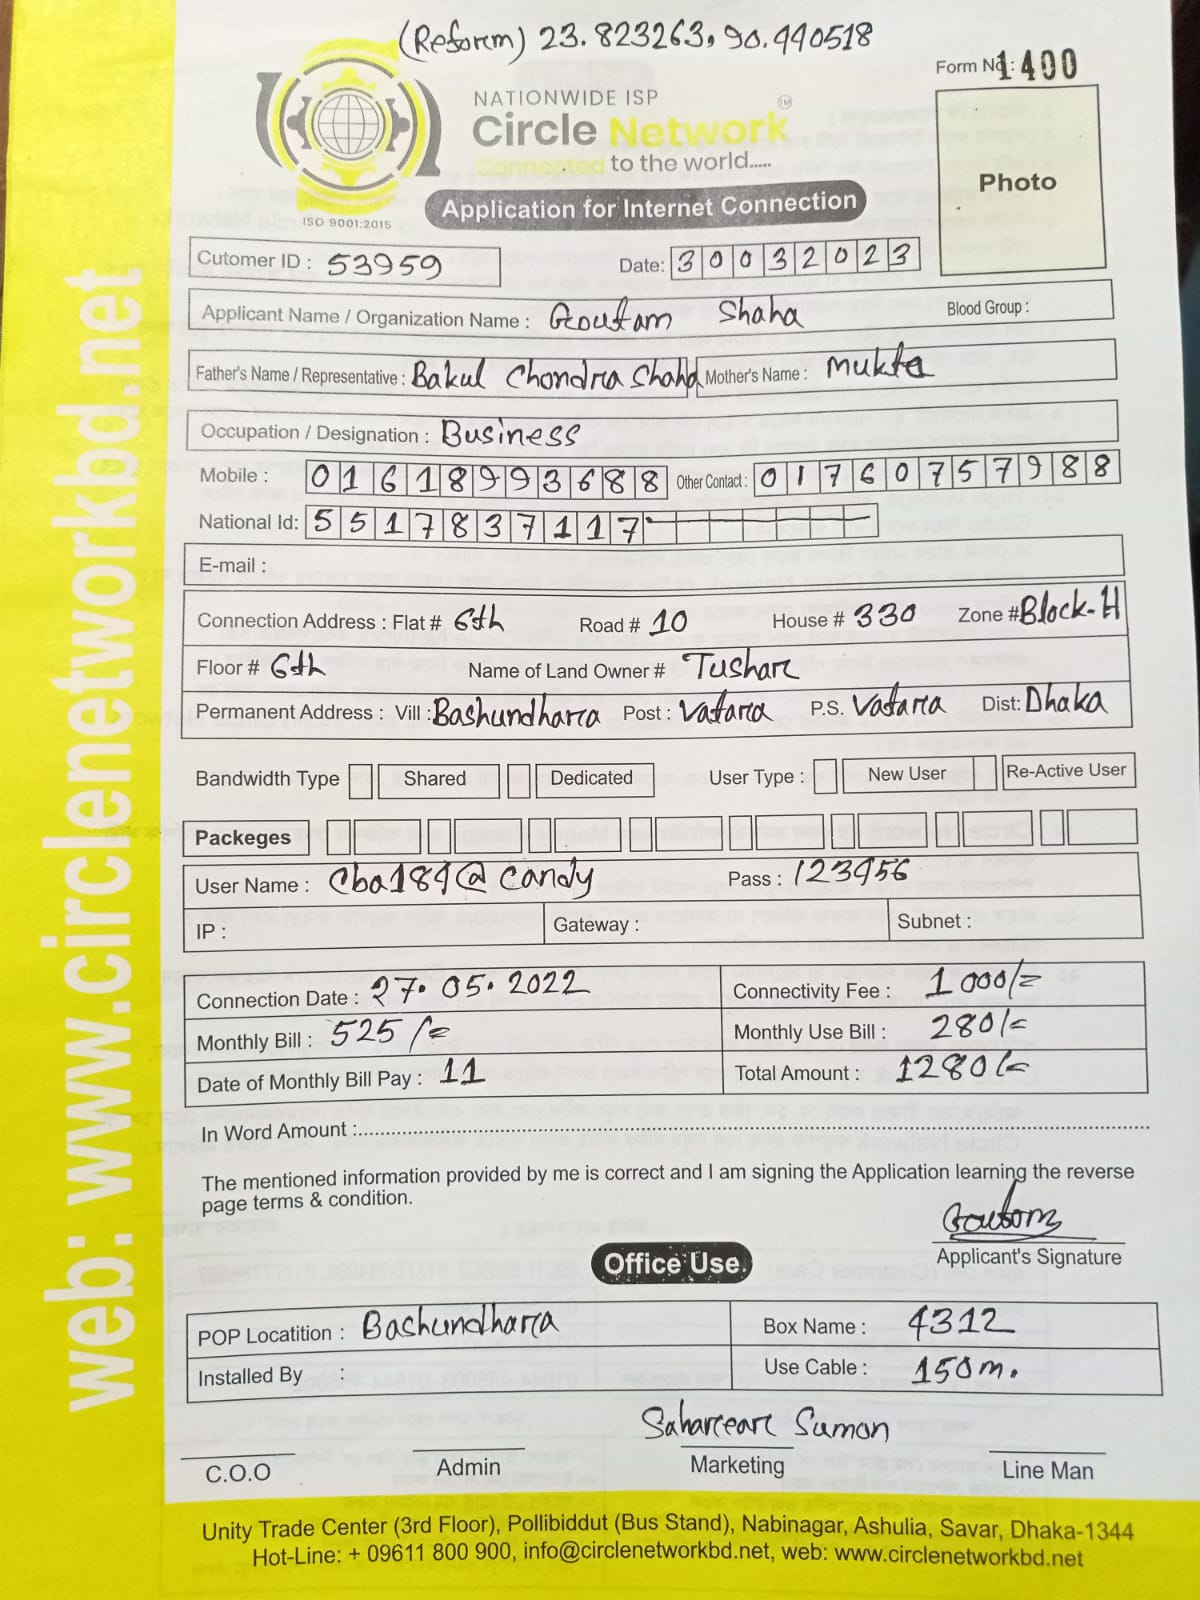 (Reform) 23.823263, 90.440518
Form No: 1400
NATIONWIDE ISP
Circle Network TM
Connected to the world.....
ISO 9001:2015
Application for Internet Connection
Photo
Cutomer ID : 53959 Date: 30032023
Applicant Name / Organization Name : Goutam Shaha Blood Group :
Father's Name / Representative : Bakul Chondra Shaha Mother's Name : Mukta
Occupation / Designation : Business
Mobile : 01618993688 Other Contact : 01760757988
National Id: 5517837117
E-mail :
Connection Address : Flat # 6th Road # 10 House # 330 Zone # Block-H
Floor # 6th Name of Land Owner # Tushar
Permanent Address : Vill : Bashundhara Post : Vatara P.S. Vatara Dist: Dhaka
Bandwidth Type Shared Dedicated User Type : New User Re-Active User
Packeges
User Name : Cba184@candy Pass : 123456
IP : Gateway : Subnet :
Connection Date : 27.05.2022 Connectivity Fee : 1000/=
Monthly Bill : 525/= Monthly Use Bill : 280/=
Date of Monthly Bill Pay : 11 Total Amount : 1280/=
In Word Amount :
The mentioned information provided by me is correct and I am signing the Application learning the reverse
page terms & condition.
Goutom
Applicant's Signature
Office Use
POP Locatition : Bashundhara Box Name : 4312
Installed By : Use Cable : 150m.
Sahareear Sumon
C.O.O Admin Marketing Line Man
Unity Trade Center (3rd Floor), Pollibiddut (Bus Stand), Nabinagar, Ashulia, Savar, Dhaka-1344
Hot-Line: + 09611 800 900, info@circlenetworkbd.net, web: www.circlenetworkbd.net
web: www.circlenetworkbd.net